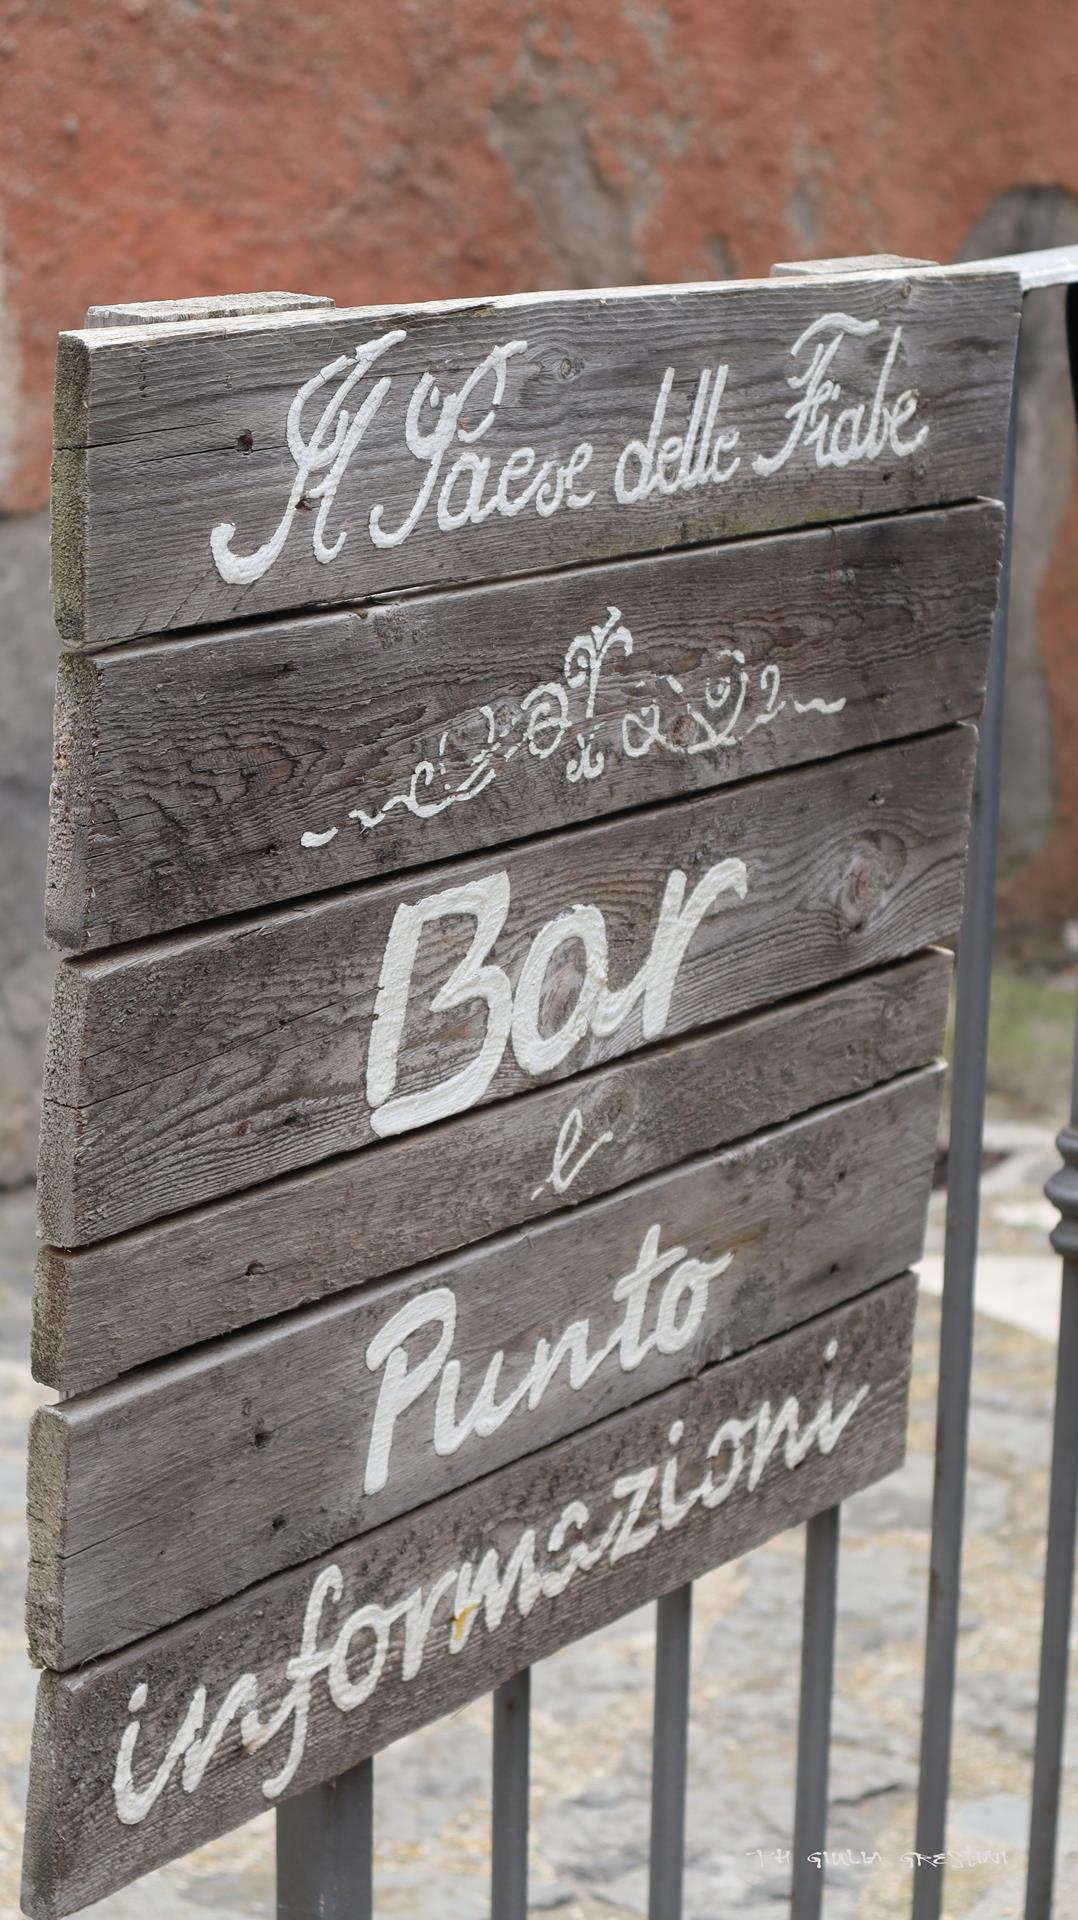 Il Paese delle Fiabe
Bar
e
Punto
informazioni
PH GIULIA GRESLINI